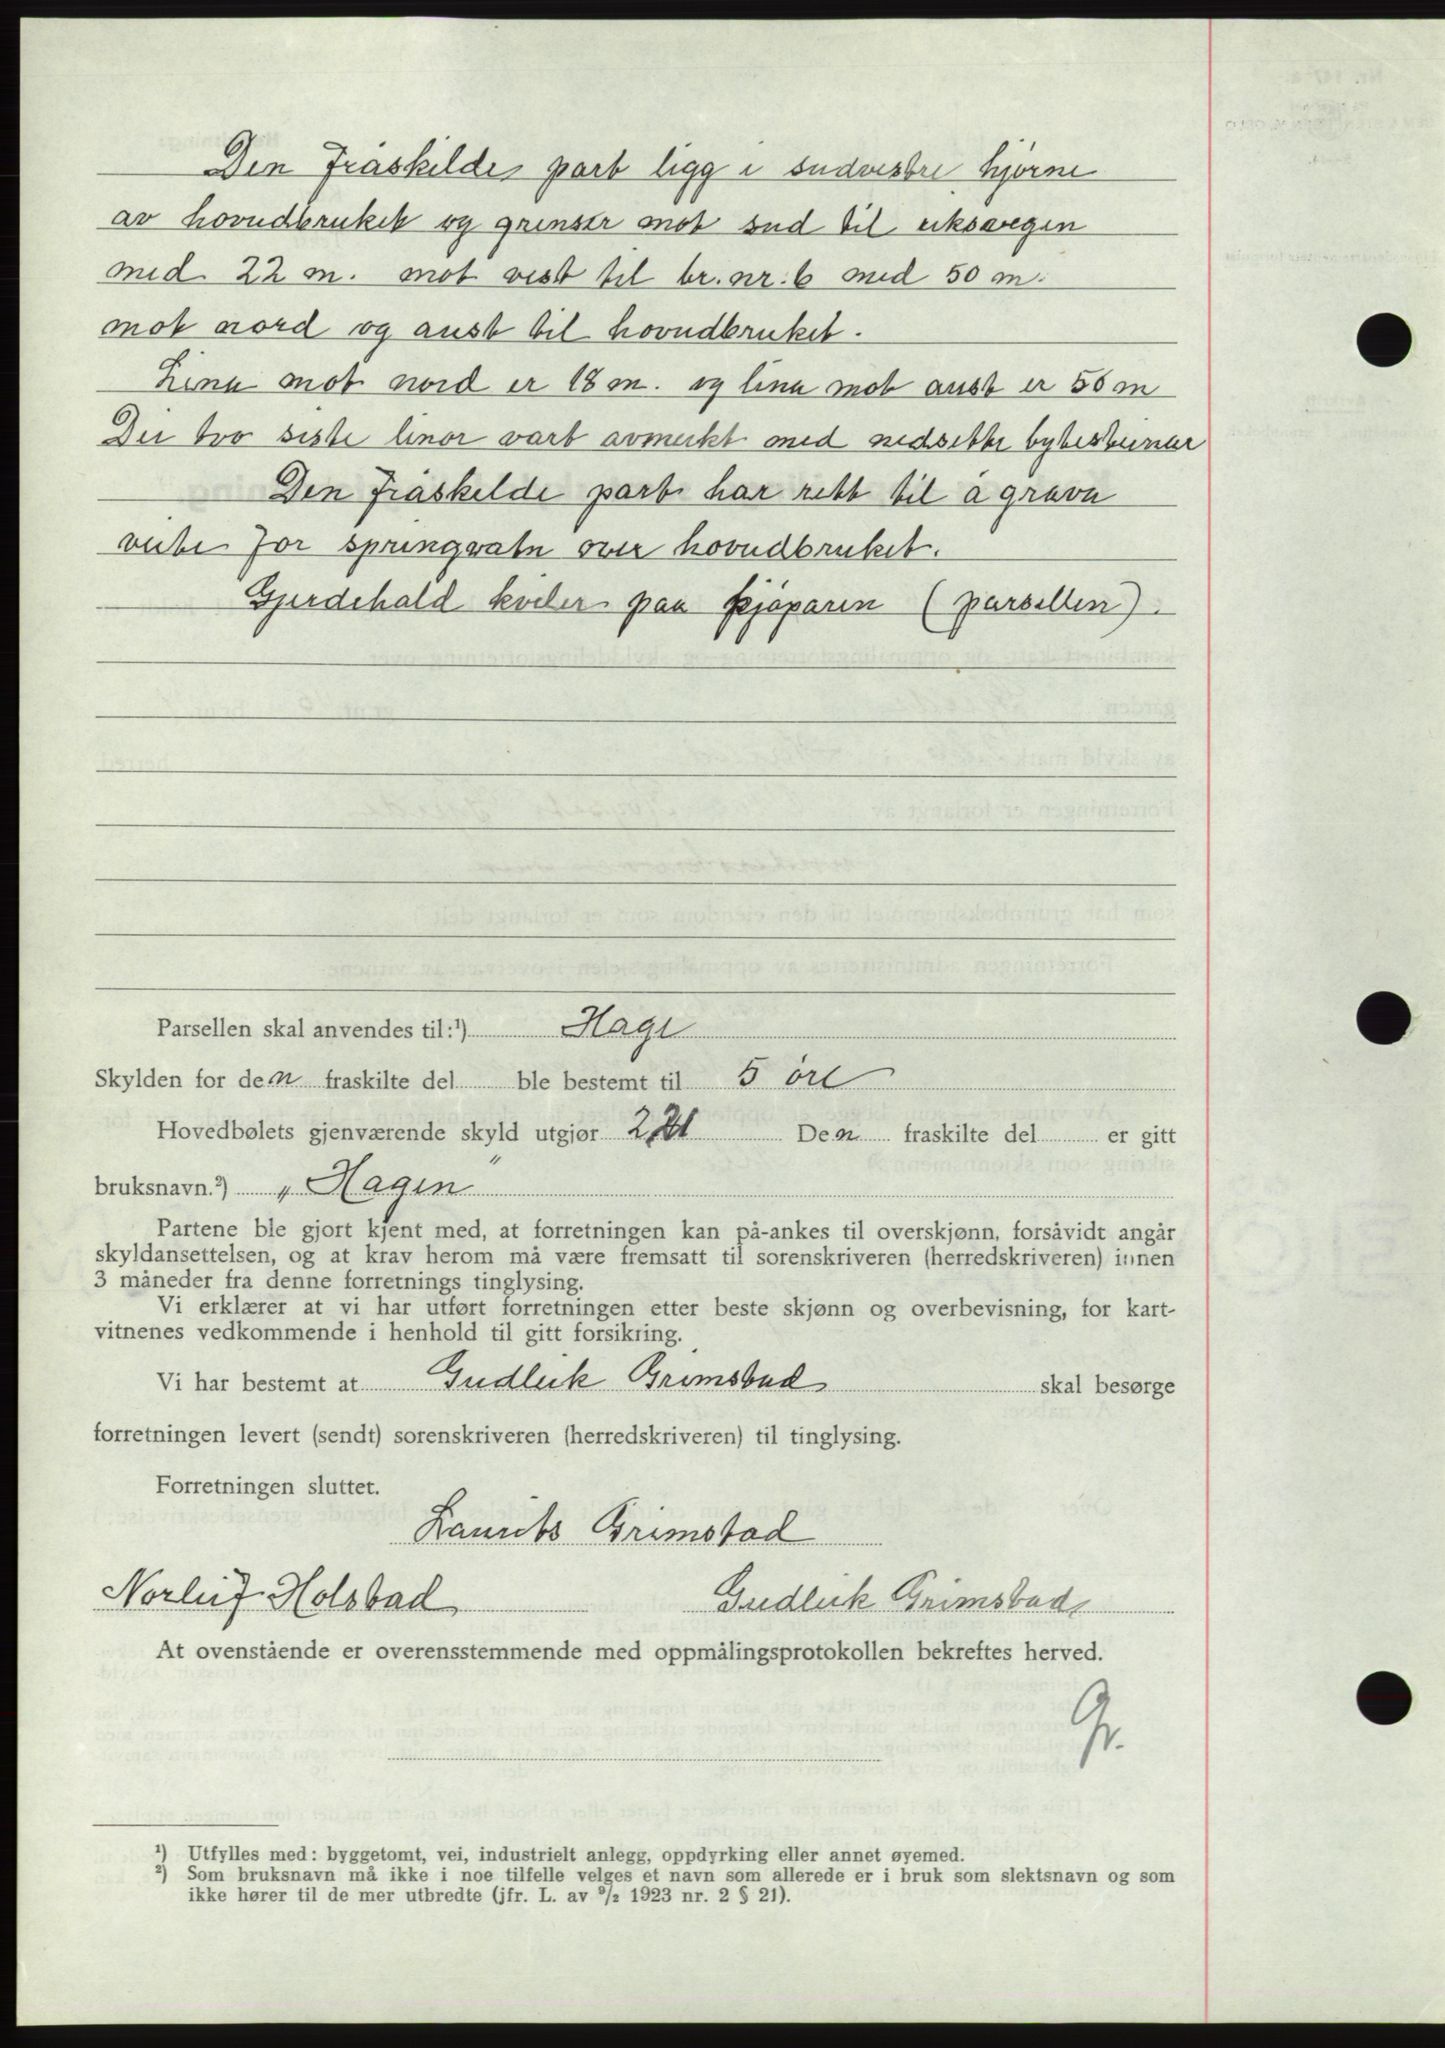 Den fråskilde part ligg i sudvestre hjørne
av hovudbruket og grenser mot sud til riksvegen
med 22 m. mot vest til br. nr. 6 med 50 m.
mot nord og aust til hovudbruket.
Lina mot nord er 18 m. og lina mot aust er 56 m
Dei tvo siste linor vart avmerkt med nedsette bytesteinar
Den fråskilde part har rett til å grava
veite for springvatn over hovudbruket.
Gjerdehald kviler paa kjøparen (parsellen).
Parsellen skal anvendes til:¹) Hage
Skylden for den fraskilte del ble bestemt til 5 øre
Hovedbølets gjenværende skyld utgjør 2,21 Den fraskilte del er gitt
bruksnavn.²) „Hagen"
Partene ble gjort kjent med, at forretningen kan på-ankes til overskjønn, forsåvidt angår
skyldansettelsen, og at krav herom må være fremsatt til sorenskriveren (herredskriveren) innen
3 måneder fra denne forretnings tinglysing.
Vi erklærer at vi har utført forretningen etter beste skjønn og overbevisning, for kart-
vitnenes vedkommende i henhold til gitt forsikring.
Vi har bestemt at Gudleik Grimstad skal besørge
forretningen levert (sendt) sorenskriveren (herredskriveren) til tinglysing.
Forretningen sluttet.
Laurits Grimstad
Norleif Holstad Gudleik Grimstad
At ovenstående er overensstemmende med oppmålingsprotokollen bekreftes herved.
Gr.
¹) Utfylles med: byggetomt, vei, industrielt anlegg, oppdyrking eller annet øyemed.
²) Som bruksnavn må ikke i noe tilfelle velges et navn som allerede er i bruk som slektsnavn og som
ikke hører til de mer utbredte (jfr. L. av ⁹/₂ 1923 nr. 2 § 21).